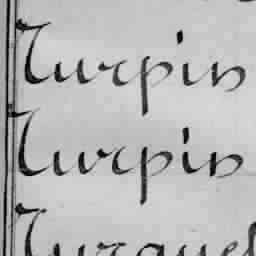 Turpin
Turpin
Turquet